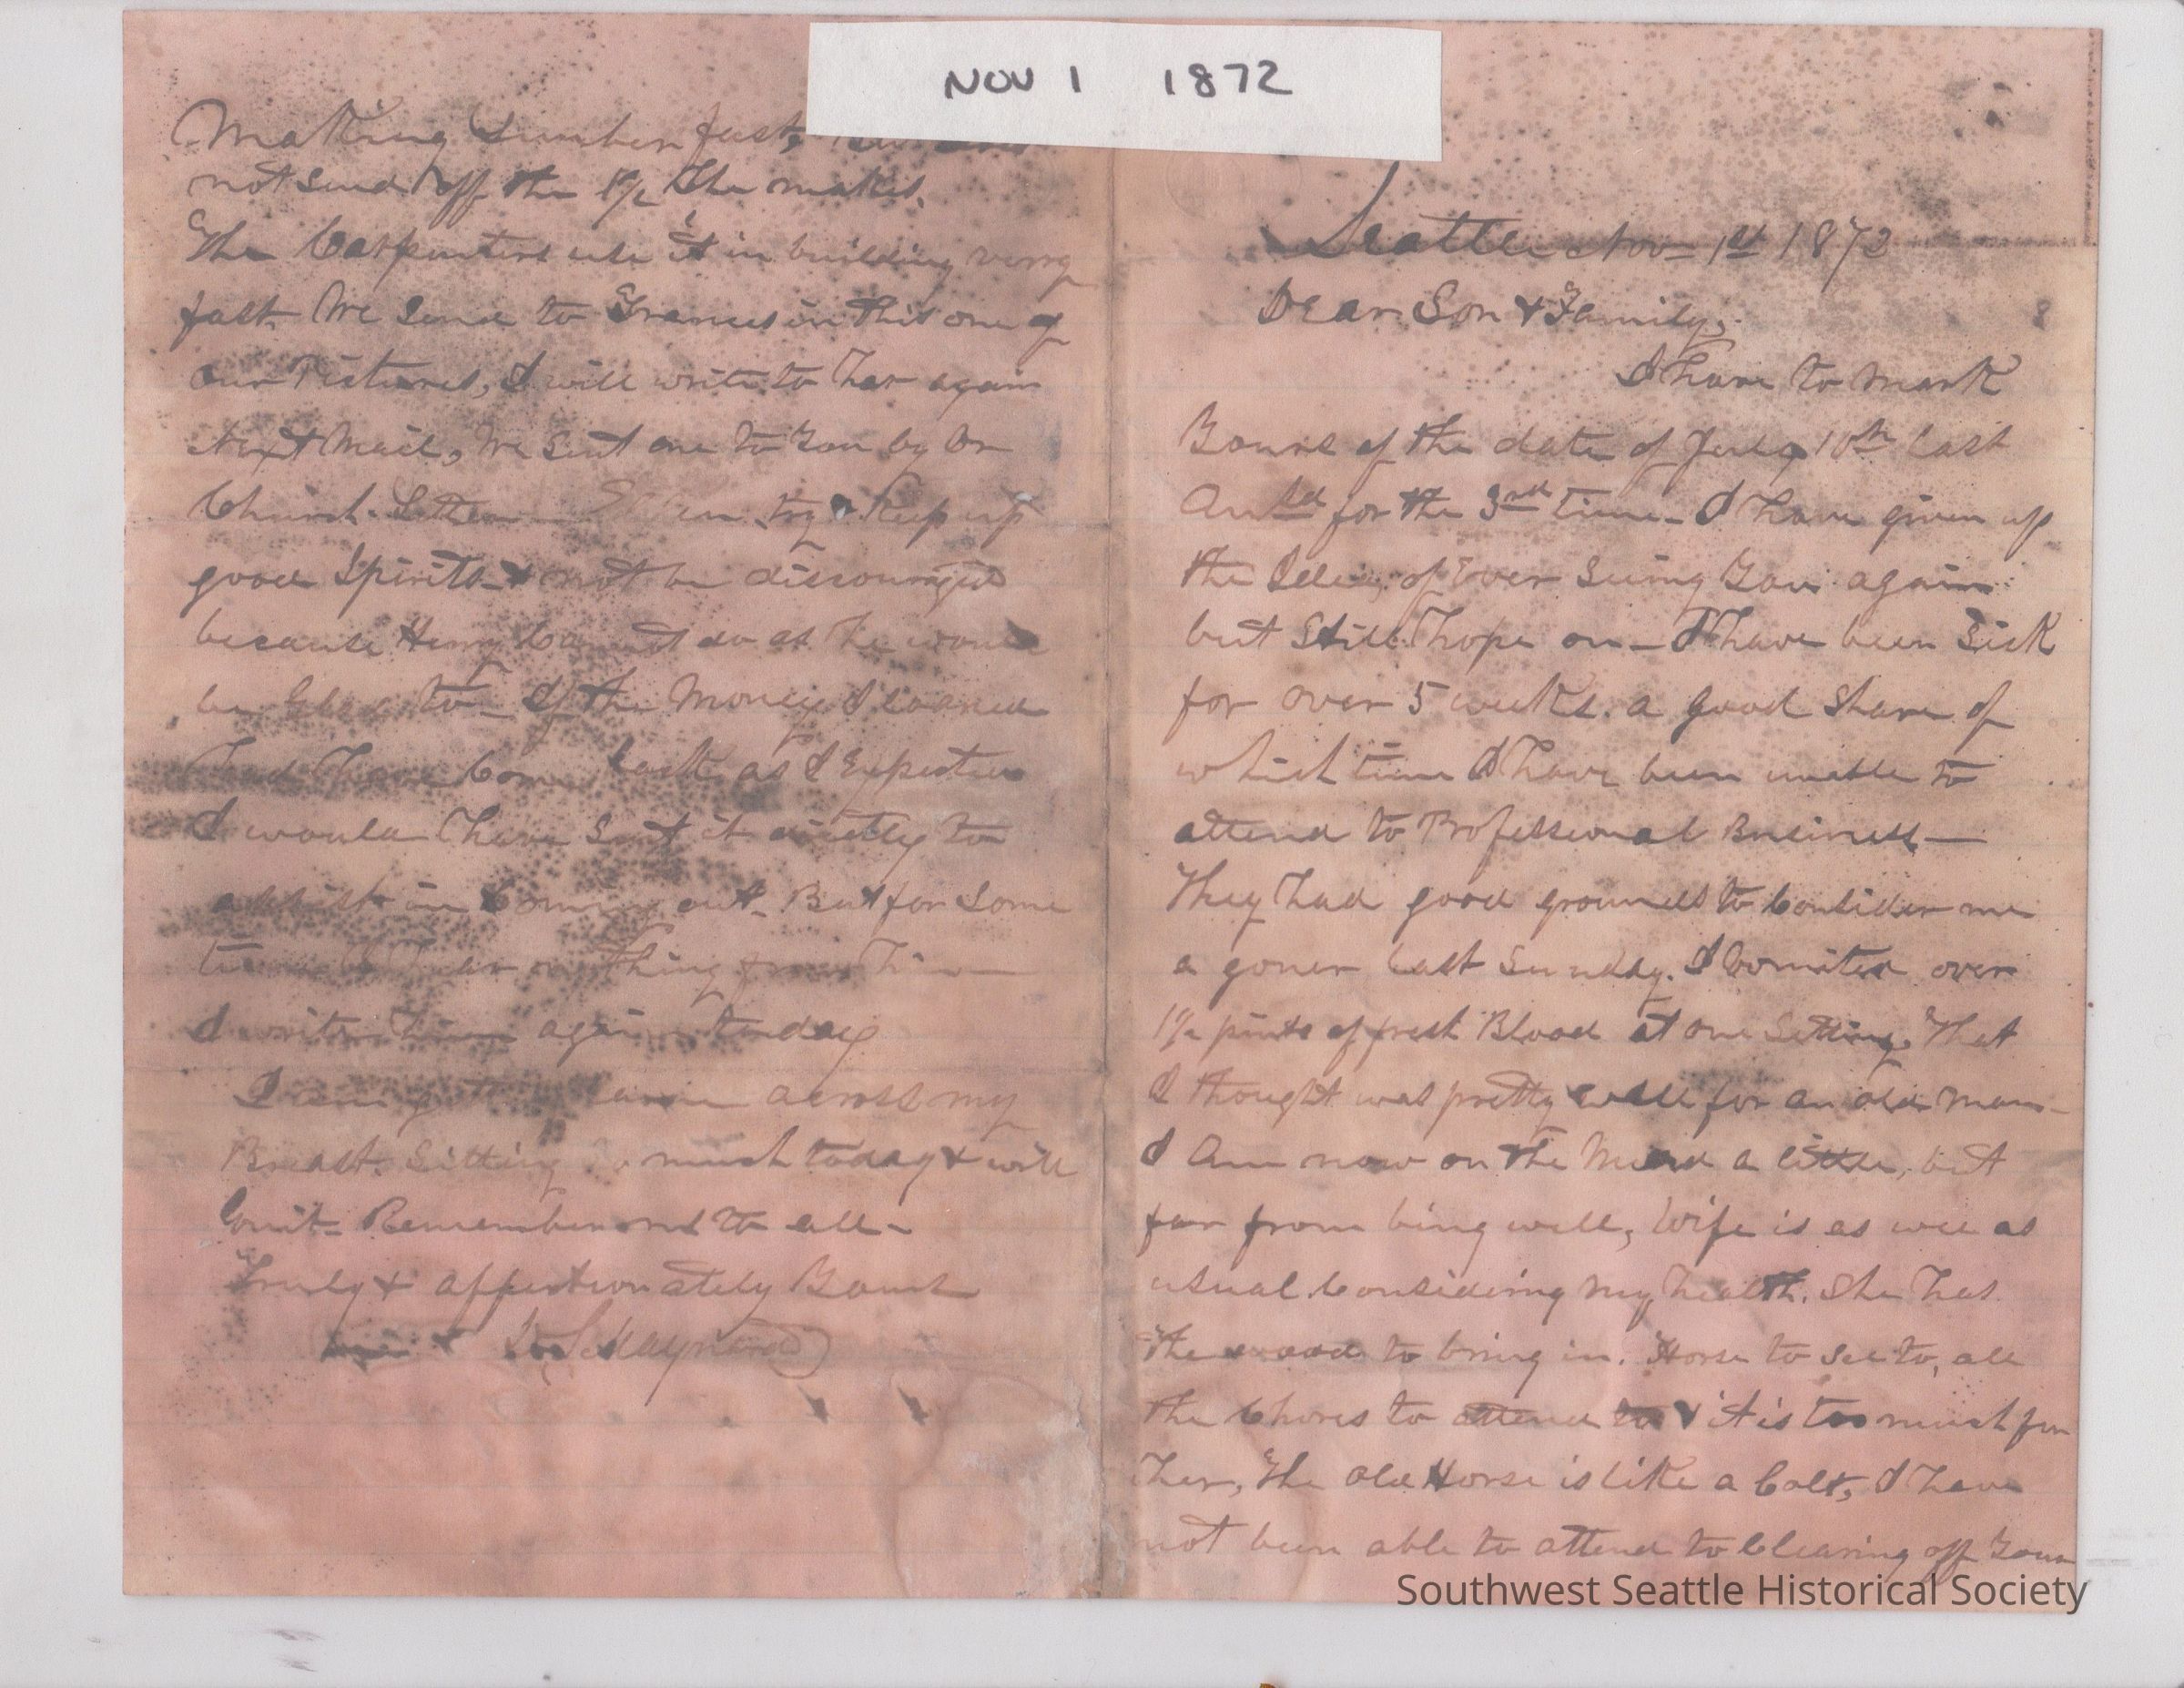 NOV 1 1872
Seattle Nov 1st 1872
Dear Son & Family,
I have to mark
Yours of the date of July 10th last
for the 3rd time I have given up
the Idea of Ever Seeing You again
but Still hope on — I have been Sick
for over 5 weeks. a good Share of
which time I have been unable to
attend to Professional Business —
They had good grounds to Consider me
a goner last Sunday. I Vomited over
1 1/2 pints of fresh Blood at one Setting. That
I thought was pretty well for an old man —
I Am now on the Mend a little, but
far from being well, Wife is as well as
usual Considering my health. She has
the wood to bring in. Horse to see to, all
the Chores to attend to & it is too much for
her, The old Horse is like a Colt, I have
not been able to attend to Clearing off Your
Making Lumber fast,
not send off the 1/2 She makes.
The Carpenters use it in building very
fast. We Send to Frances in this one of
our Pictures, I will write to her again
Next Mail, We Sent one to You by Dr
Church. try & Keep up
good Spirits & not be discouraged
because Henry Cannot do as he would
be Glad to — If the Money I loaned
had have Come back as I Expected
I would have Sent it directly to
assist in Coming out. But for Some
time I hear nothing from him —
I write him again today
I am across my
Breast. Sitting So much today & will
Quit — Remember me to all —
Truly & affectionately Yours
D. S. Maynard
Southwest Seattle Historical Society